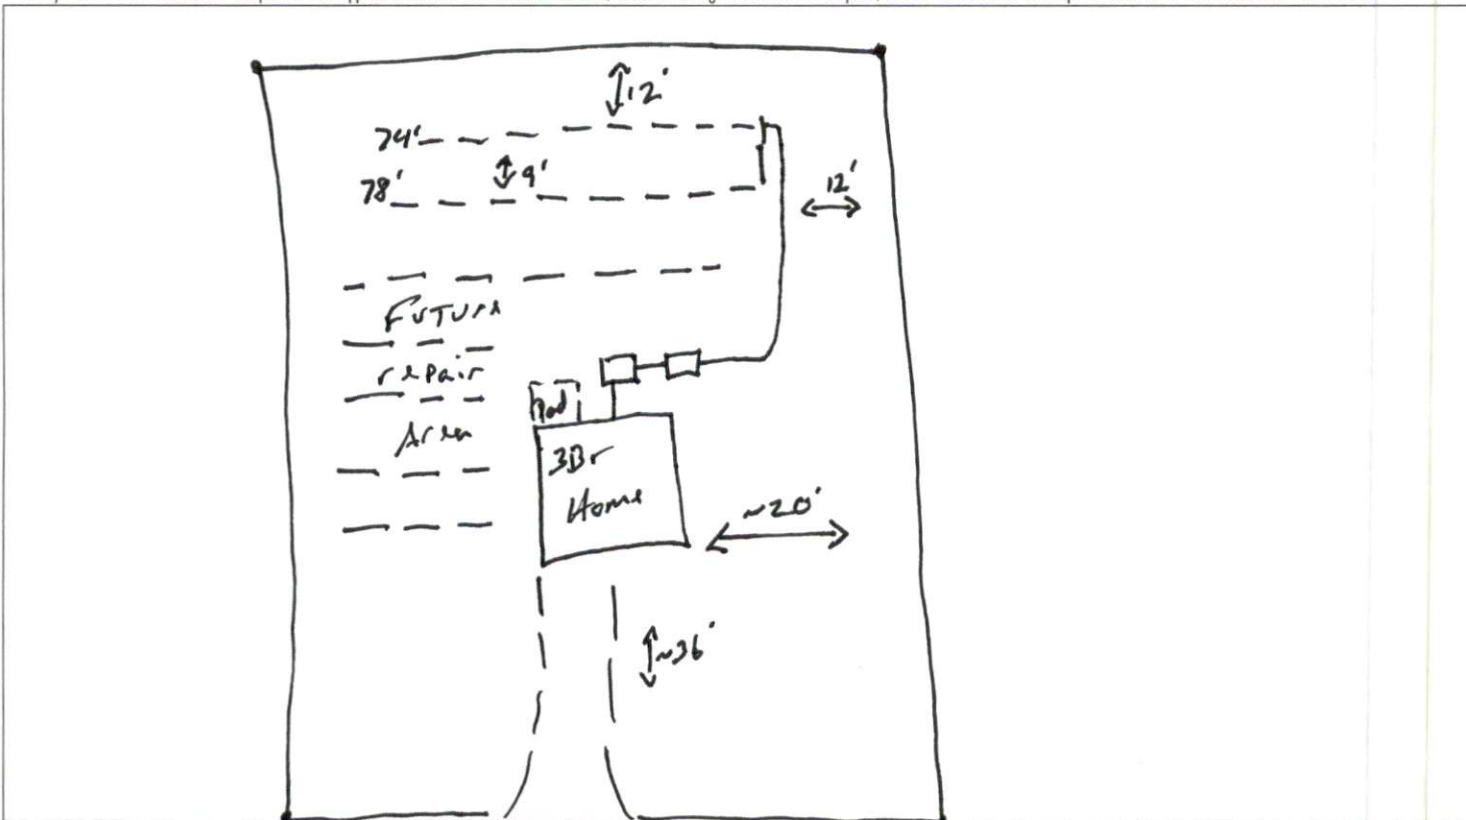 12'
74'
9'
78'
12'
Future
repair
Area
Pad
3Br
Home
~20'
~36'